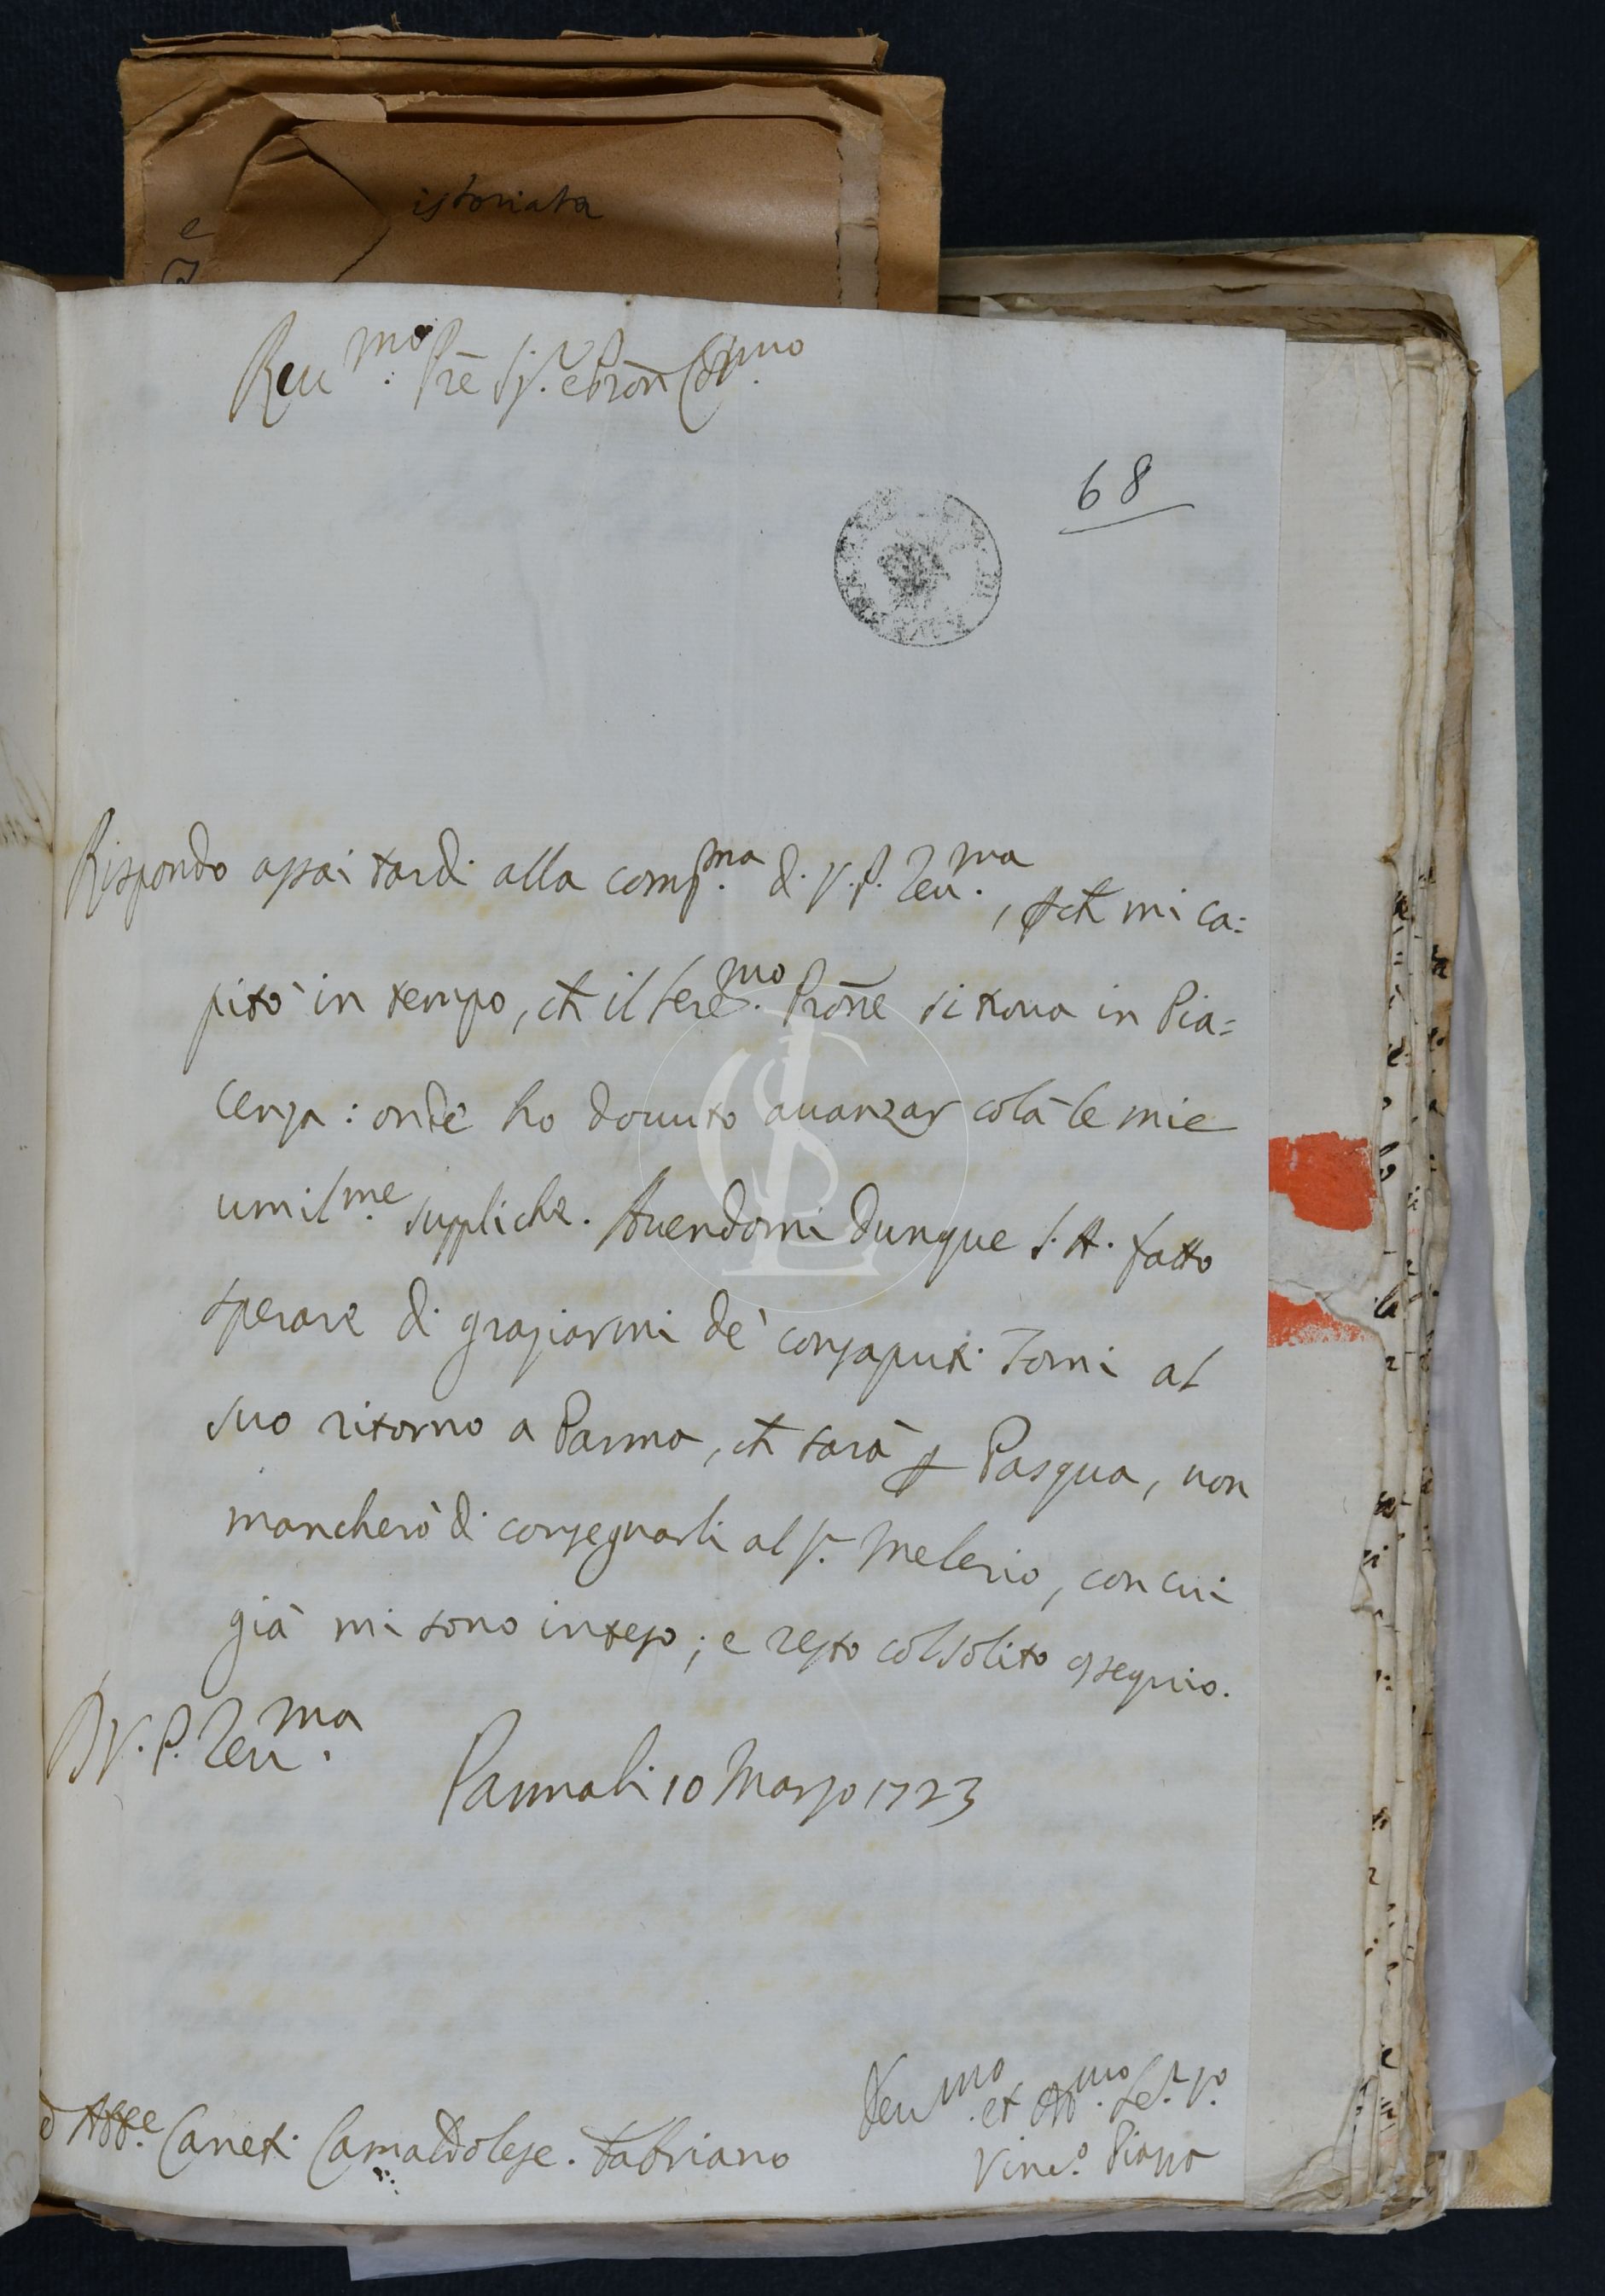 istoriata
e
Reu.mo Pre Sig.r e Pron Col.mo
68
Rispondo assai tardi alla comp.ma di V. P. Reu.ma, pch mi ca:
pitò in tempo, ch il Sere.mo Prone si troua in Pia:
cenza: onde ho douuto auanzar colà le mie
umil.me suppliche. Auendomi dunque S. A. fatto
sperare di graziarmi de' consaputi Tomi al
suo ritorno a Parma, ch sarà p Pasqua, non
mancherò di consegnarli al S.r Melerio, con cui
già mi sono inteso; e resto col solito ossequio.
D V. P. Reu.ma
Parma li 10 Marzo 1723
Deu.mo et Obb.mo Se.r V.o
Vinc.o Piazza
Abb.e Caneti Camaldolese. Fabriano